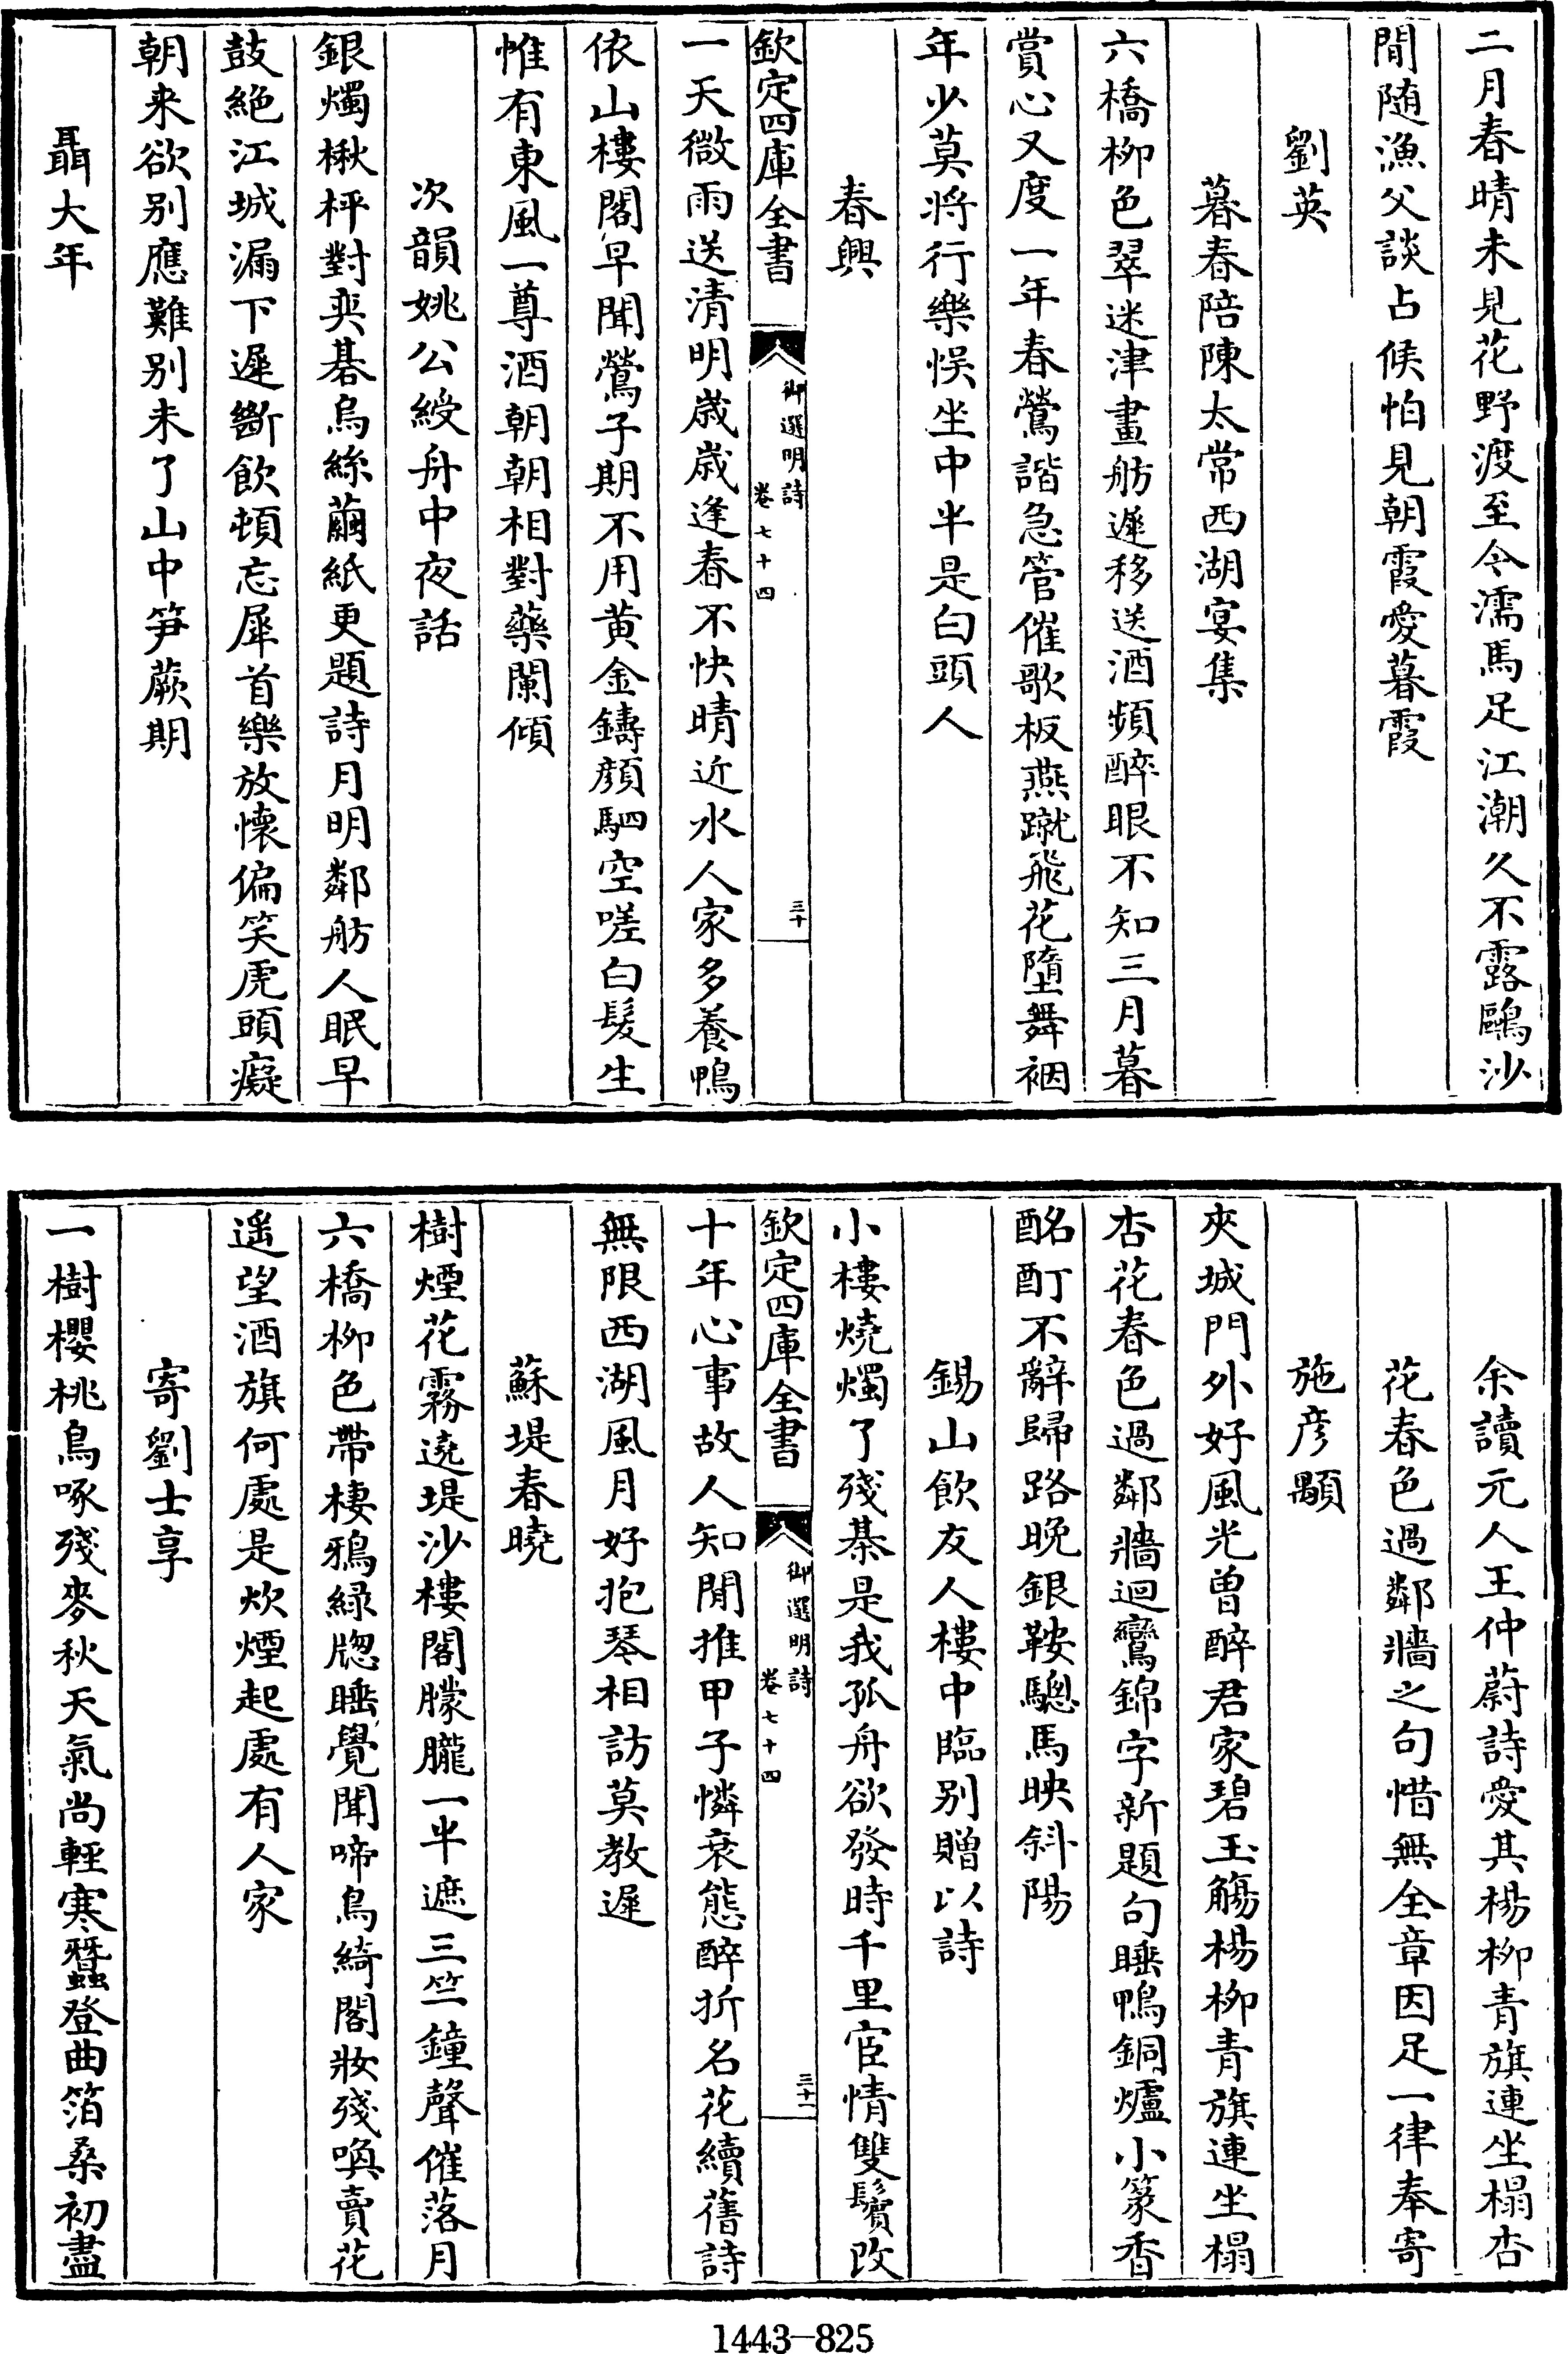 二月春晴未見花野渡至今濡馬足江潮久不露鷗沙
閒随漁父談占候怕見朝霞愛暮霞
劉英
暮春陪陳太常西湖宴集
六橋柳色翠迷津畫舫遲移送酒頻醉眼不知三月暮
賞心又度一年春鶯諧急管催歌板燕蹴飛花墮舞裀
年少莫將行樂悞坐中半是白頭人
春興
欽定四庫全書
御選明詩
卷七十四
三十
一天微雨送清明歲歲逢春不快晴近水人家多養鴨
依山樓閣早聞鶯子期不用黄金鑄顔駟空嗟白髮生
惟有東風一尊酒朝朝相對藥闌傾
次韻姚公綬舟中夜話
銀燭楸枰對奕碁烏絲繭紙更題詩月明鄰舫人眠早
鼓絶江城漏下遲斷飲頓忘犀首樂放懷偏笑虎頭癡
朝来欲别應難别未了山中笋蕨期
聶大年
余讀元人王仲蔚詩愛其楊柳青旗連坐榻杏
花春色過鄰牆之句惜無全章因足一律奉寄
施彦顒
夾城門外好風光曽醉君家碧玉觴楊柳青旗連坐榻
杏花春色過鄰牆迴鸞錦字新題句睡鴨銅爐小篆香
酩酊不辭歸路晚銀鞍驄馬映斜陽
錫山飲友人樓中臨别贈以詩
小樓燒燭了殘棊是我孤舟欲發時千里宦情雙鬢改
欽定四庫全書
御選明詩
卷七十四
三十一
十年心事故人知閒推甲子憐衰態醉折名花續舊詩
無限西湖風月好抱琴相訪莫教遲
蘇堤春曉
樹煙花霧遶堤沙樓閣朦朧一半遮三竺鐘聲催落月
六橋柳色帶棲鴉緑牕睡覺聞啼鳥綺閣妝殘喚賣花
遥望酒旗何處是炊煙起處有人家
寄劉士享
一樹櫻桃鳥啄殘麥秋天氣尚輕寒蠶登曲箔桑初盡
1443-825